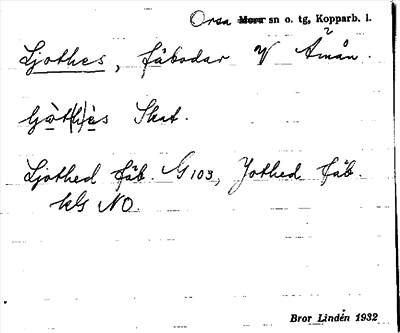 Orsa Mora sn o. tg, Kopparb. l.
Ljothes, fäbodar V Åmån.
Skat.
Ljothed fäb. G 103, Jothed fäb.
kls NO.
Bror Lindén 1932